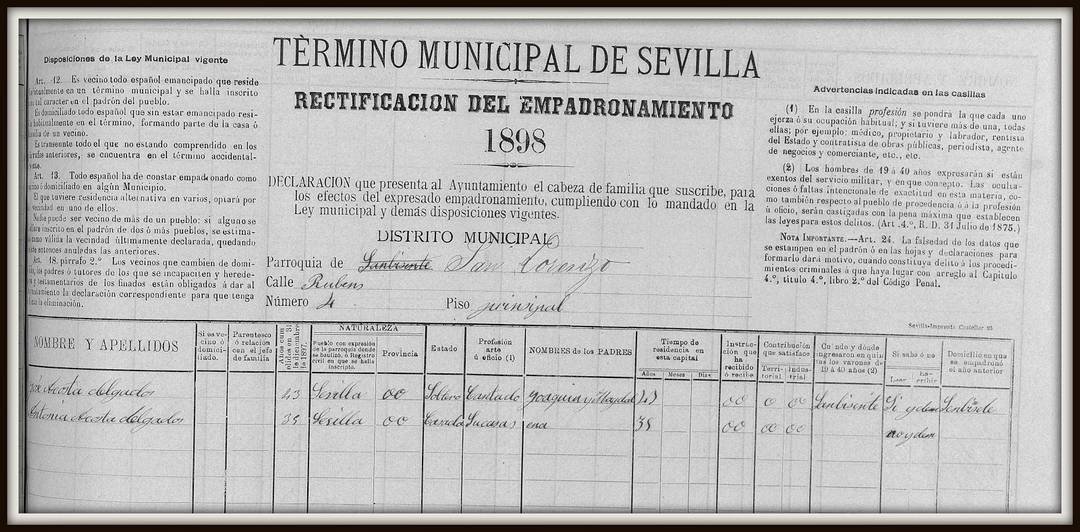 TÈRMINO MUNICIPAL DE SEVILLA
RECTIFICACION DEL EMPADRONAMIENTO
1898
Disposiciones de la Ley Municipal vigente
Art. 12. Es vecino todo español emancipado que reside
en un término municipal y se halla inscrito
tal caracter en el padrón del pueblo.
domiciliado todo español que sin estar emancipado resi-
habitualmente en el término, formando parte de la casa ó
de un vecino.
transeunte todo el que no estando comprendido en los
anteriores, se encuentra en el término accidental-
Art. 13. Todo español ha de constar empadronado como
ó domiciliado en algún Municipio.
El que tuviere residencia alternativa en varios, optará por
vecindad en uno de ellos.
Nadie puede ser vecino de más de un pueblo: si alguno se
inscrito en el padrón de dos ó más pueblos, se estima-
como válida la vecindad últimamente declarada, quedando
entonces anuladas las anteriores.
Art. 18, párrafo 2.º Los vecinos que cambien de domi-
los padres ó tutores de los que se incapaciten y herede-
y testamentarios de los finados están obligados á dar al
la declaración correspondiente para que tenga
la eliminación.
DECLARACION que presenta al Ayuntamiento el cabeza de familia que suscribe, para
los efectos del expresado empadronamiento, cumpliendo con lo mandado en la
Ley municipal y demás disposiciones vigentes.
DISTRITO MUNICIPAL
Parroquia de San Lorenzo
Calle Rubens
Número 4 Piso principal
Advertencias indicadas en las casillas
(1) En la casilla profesión se pondrá la que cada uno
ejerza ó su ocupación habitual; y si tuviere más de una, todas
ellas; por ejemplo: médico, propietario y labrador, rentista
del Estado y contratista de obras públicas, periodista, agente
de negocios y comerciante, etc., etc.
(2) Los hombres de 19 á 40 años expresarán si están
exentos del servicio militar, y en que concepto. Las oculta-
ciones ó faltas intencionale de exactitud en esta materia, co-
mo también respecto al pueblo de procedencia ó á la profesión
ú oficio, serán castigadas con la pena máxima que establecen
las leyes para estos delitos. (Art. 4.º, R. D. 31 Julio de 1875.)
NOTA IMPORTANTE.—Art. 24. La falsedad de los datos que
se estampen en el padrón ó en las hojas y declaraciones para
formarlo dará motivo, cuando constituya delito á los procedi-
mientos criminales á que haya lugar con arreglo al Capítulo
4.º, título 4.º, libro 2.º del Código Penal.
Sevilla-Imprenta
NOMBRE Y APELLIDOS
Si es ve-
cino ó
domici-
liado.
Parentesco
ó relación
con el jefe
de familia
Años cum
plidos en 31
de diciembre
de 1897.
NATURALEZA
Pueblo con expresión
de la parroquia donde
se bautizó, ó Registro
civil en que se halla
inscripto.
Provincia
Estado
Profesión
arte
ú oficio (1)
NOMBRES de los PADRES
Tiempo de
residencia en
esta capital
Años Meses Días
Instruc-
ción que
ha
recibido
ó recibe
Contribución
que satisface
Terri-
torial
Indus-
trial
Cuándo y dónde
ingresaron en quin
tas los varones de
19 á 40 años (2)
Si sabe ó no
Leer
Es-
cribir
Domicilio en que
se empadronó
el año anterior
Acosta delgados 43 Sevilla oo Soltero oo o o Sanbisente Si ydem
Antonia Acosta delgados 38 Sevilla oo Casada Sucasa 38 oo oo oo no ydem